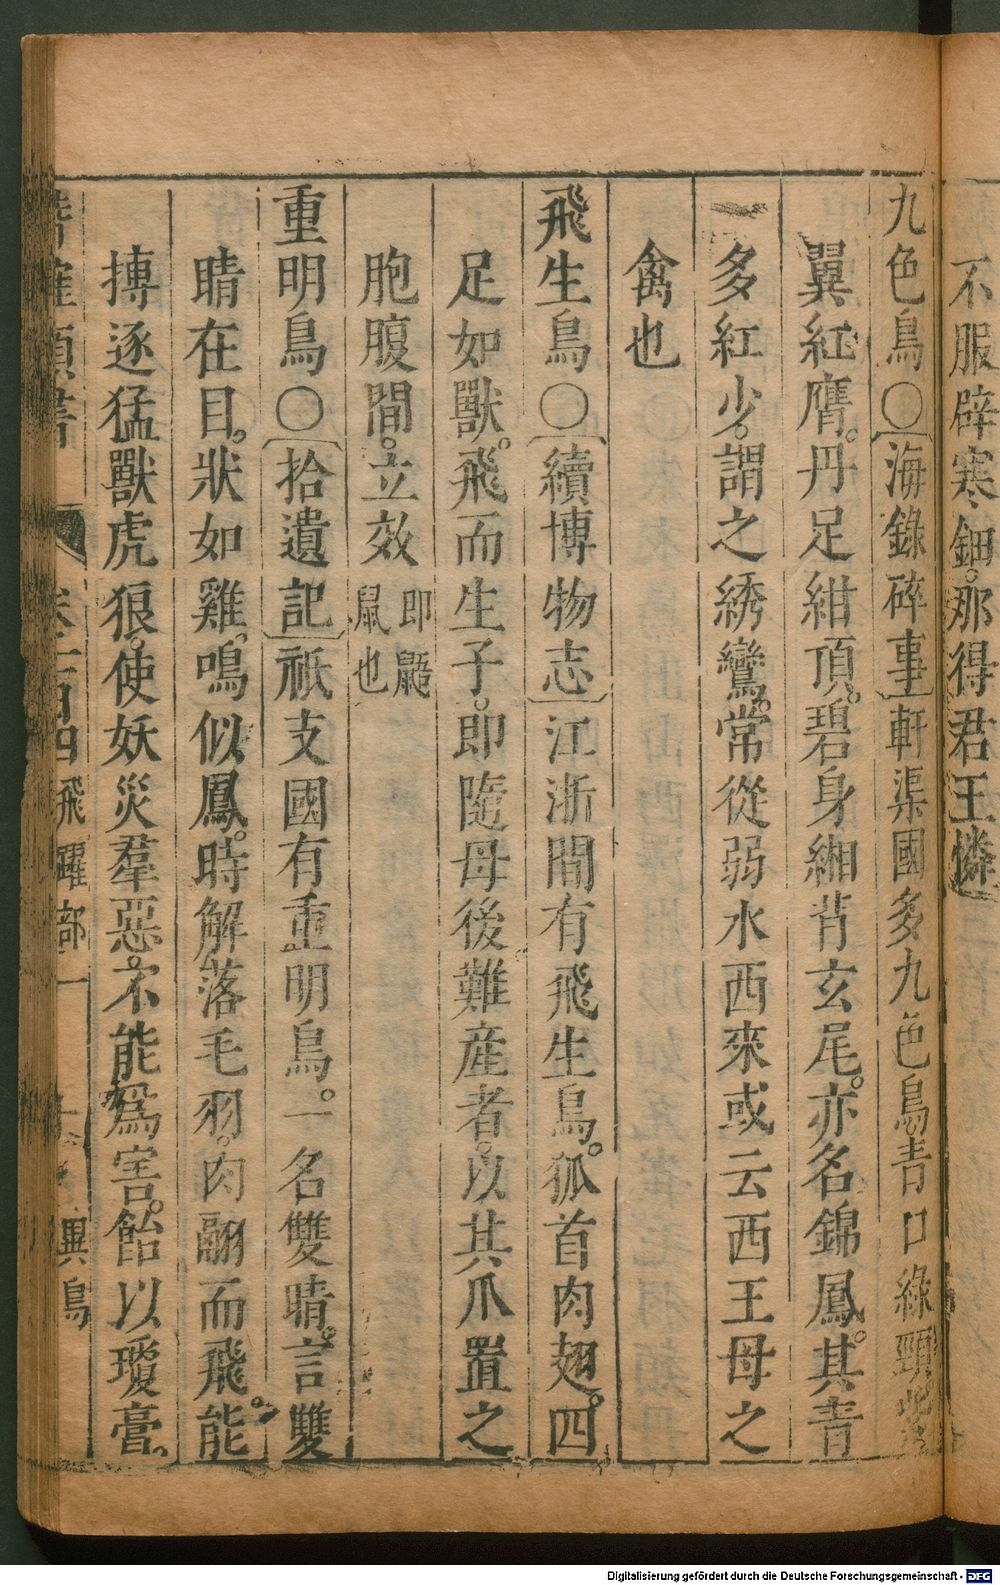 不服辟寒鈿。那得君王憐
九色鳥〇〔海錄碎事〕軒渠國多九色鳥青口綠頸紫
翼紅膺。丹足紺頂。碧身緗背玄尾。亦名錦鳳。其青
多紅少。謂之綉鸞。常從弱水西來或云西王母之
禽也
飛生鳥〇〔續博物志〕江浙間有飛生鳥。狐首肉翅。四
足如獸。飛而生子。即隨母後難産者。以其爪置之
胞腹間。立效即鼯鼠也
重明鳥〇〔拾遺記〕祇支國有重明鳥。一名雙睛。言雙
睛在目。狀如雞。鳴似鳳。時解落毛羽。肉翮而飛。能
搏逐猛獸虎狼。使妖災羣惡。不能爲害。飴以瓊膏。
類書 卷 百四 飛躍部一 異鳥
Digitalisierung gefördert durch die Deutsche Forschungsgemeinschaft - DFG